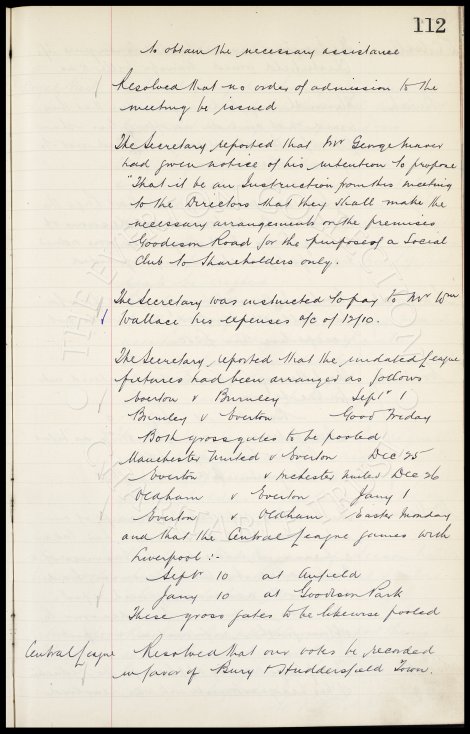 112
to obtain the necessary assistance
Resolved that no order of admission to the
meeting be issued
The Secretary reported that Mr George
had given notice of his intention to propose
"That it be an Instruction from this meeting
to the Directors that they shall make the
necessary arrangements on the premises
Goodison Road for the purpose of a Social
Club to Shareholders only.
The Secretary was instructed to pay to Mr Wm
Wallace his expenses a/c of 12/10.
The Secretary reported that the undated League
fixtures had been arranged as follows
Everton v Burnley Septr 1
Burnley v Everton Good Friday
Both gross gates to be pooled
Manchester United v Everton Dec 25
Everton v Mchester United Dec 26
Oldham v Everton Jany 1
Everton v Oldham Easter Monday
and that the Central League games with
Liverpool :-
Septr 10 at Anfield
Jany 10 at Goodison Park
These gross gates to be likewise pooled
Central League Resolved that our votes be recorded
in favor of Bury & Huddersfield Town.